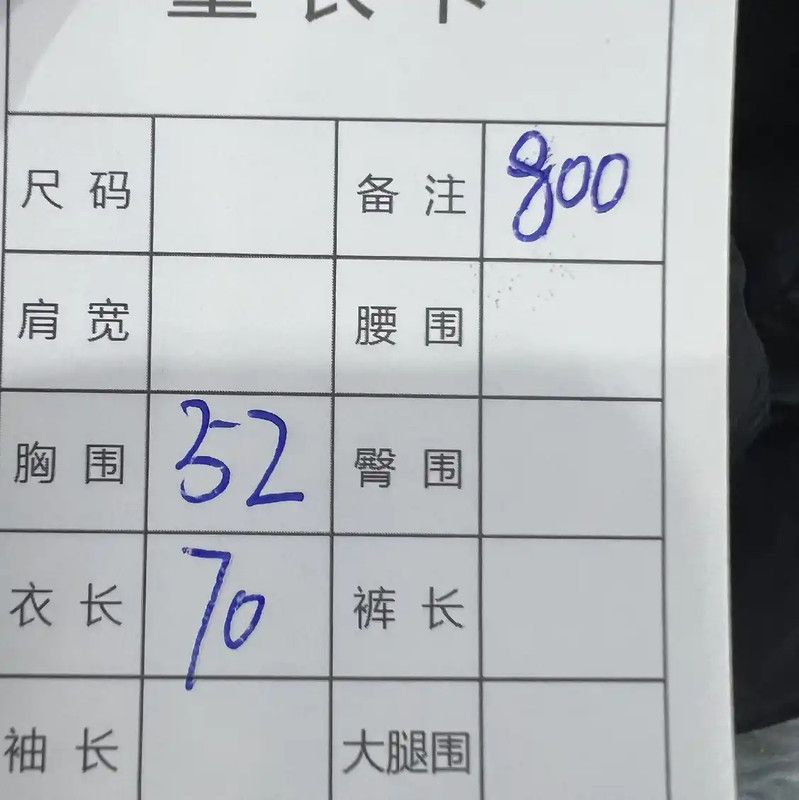 量长卡
尺码 备注 800
肩宽 腰围
胸围 52 臀围
衣长 70 裤长
袖长 大腿围